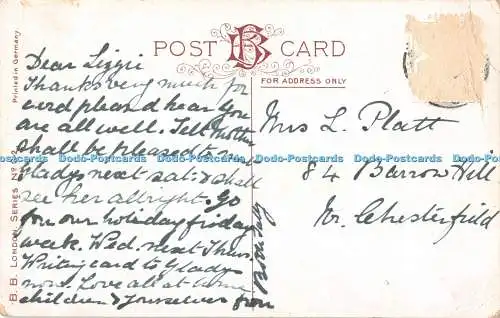 POST CARD
FOR ADDRESS ONLY
Printed in Germany.
B. B. LONDON SERIES No
Dear Lizzie
Thanks very much for
card pleased hear you
are all well. Tell Mother
shall be pleased to see
Gladys next Sat: & shall
see her allright. Go
for our holiday friday
week. Wed. next Thurs.
Writing card to Gladys
now. Love all at home
children & yourselves from
Both Sally
Mrs L. Platt
84 Barrow Hill
Nr. Chesterfield
Dodo-Postcards Dodo-Postcards Dodo-Postcards Dodo-Postcards Dodo-Postcards